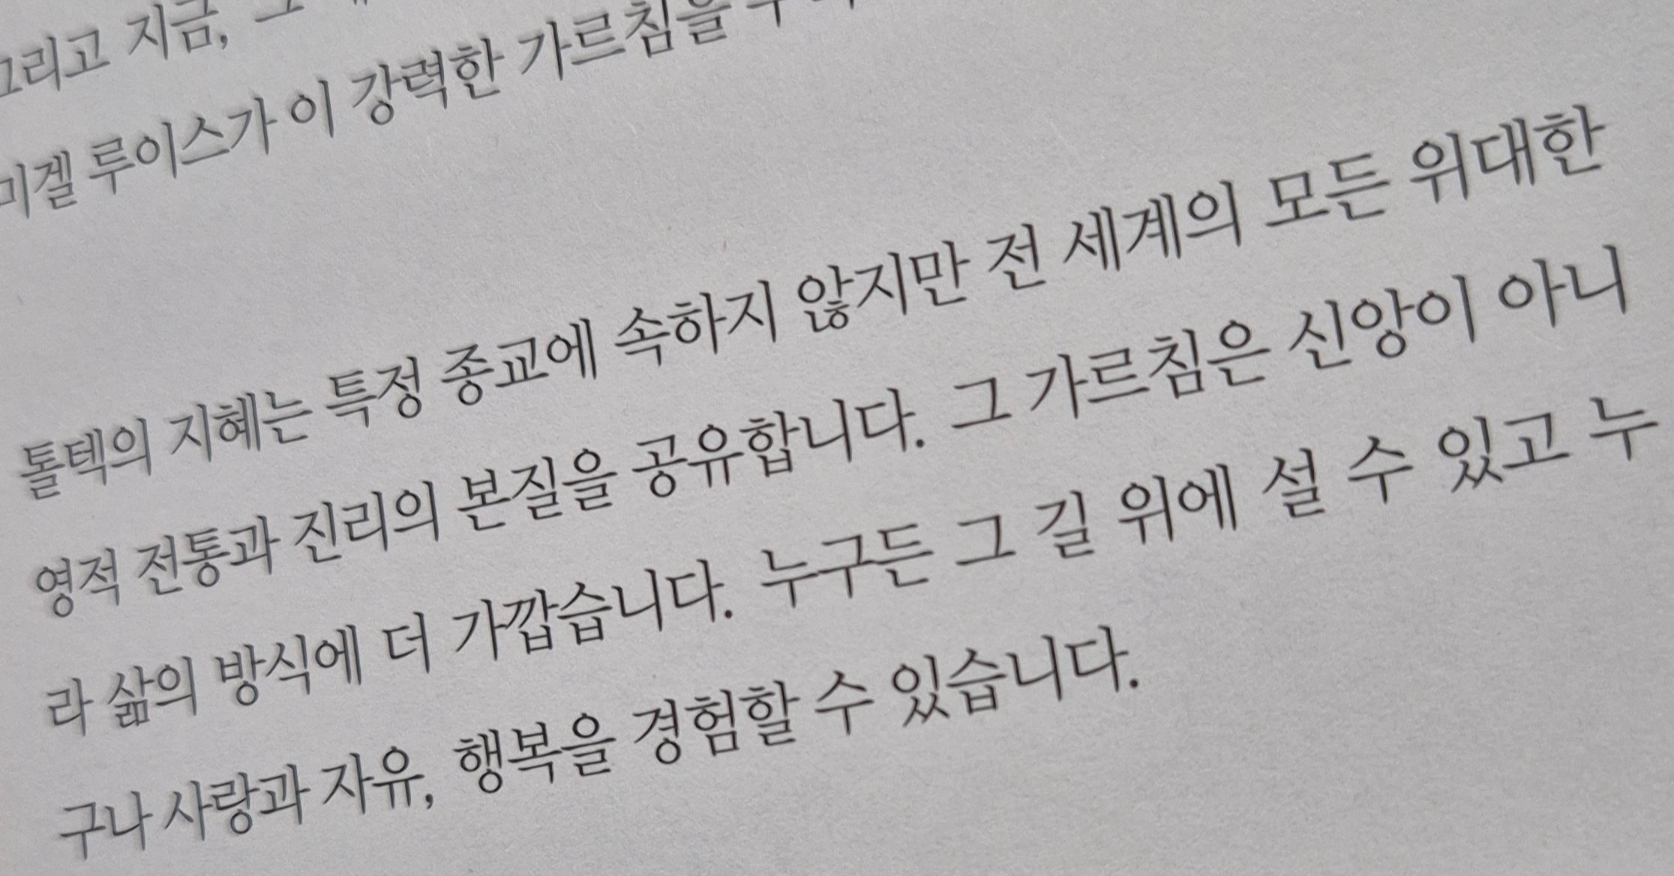 그리고 지금, 그
미겔 루이스가 이 강력한 가르침을
톨텍의 지혜는 특정 종교에 속하지 않지만 전 세계의 모든 위대한
영적 전통과 진리의 본질을 공유합니다. 그 가르침은 신앙이 아니
라 삶의 방식에 더 가깝습니다. 누구든 그 길 위에 설 수 있고 누
구나 사랑과 자유, 행복을 경험할 수 있습니다.